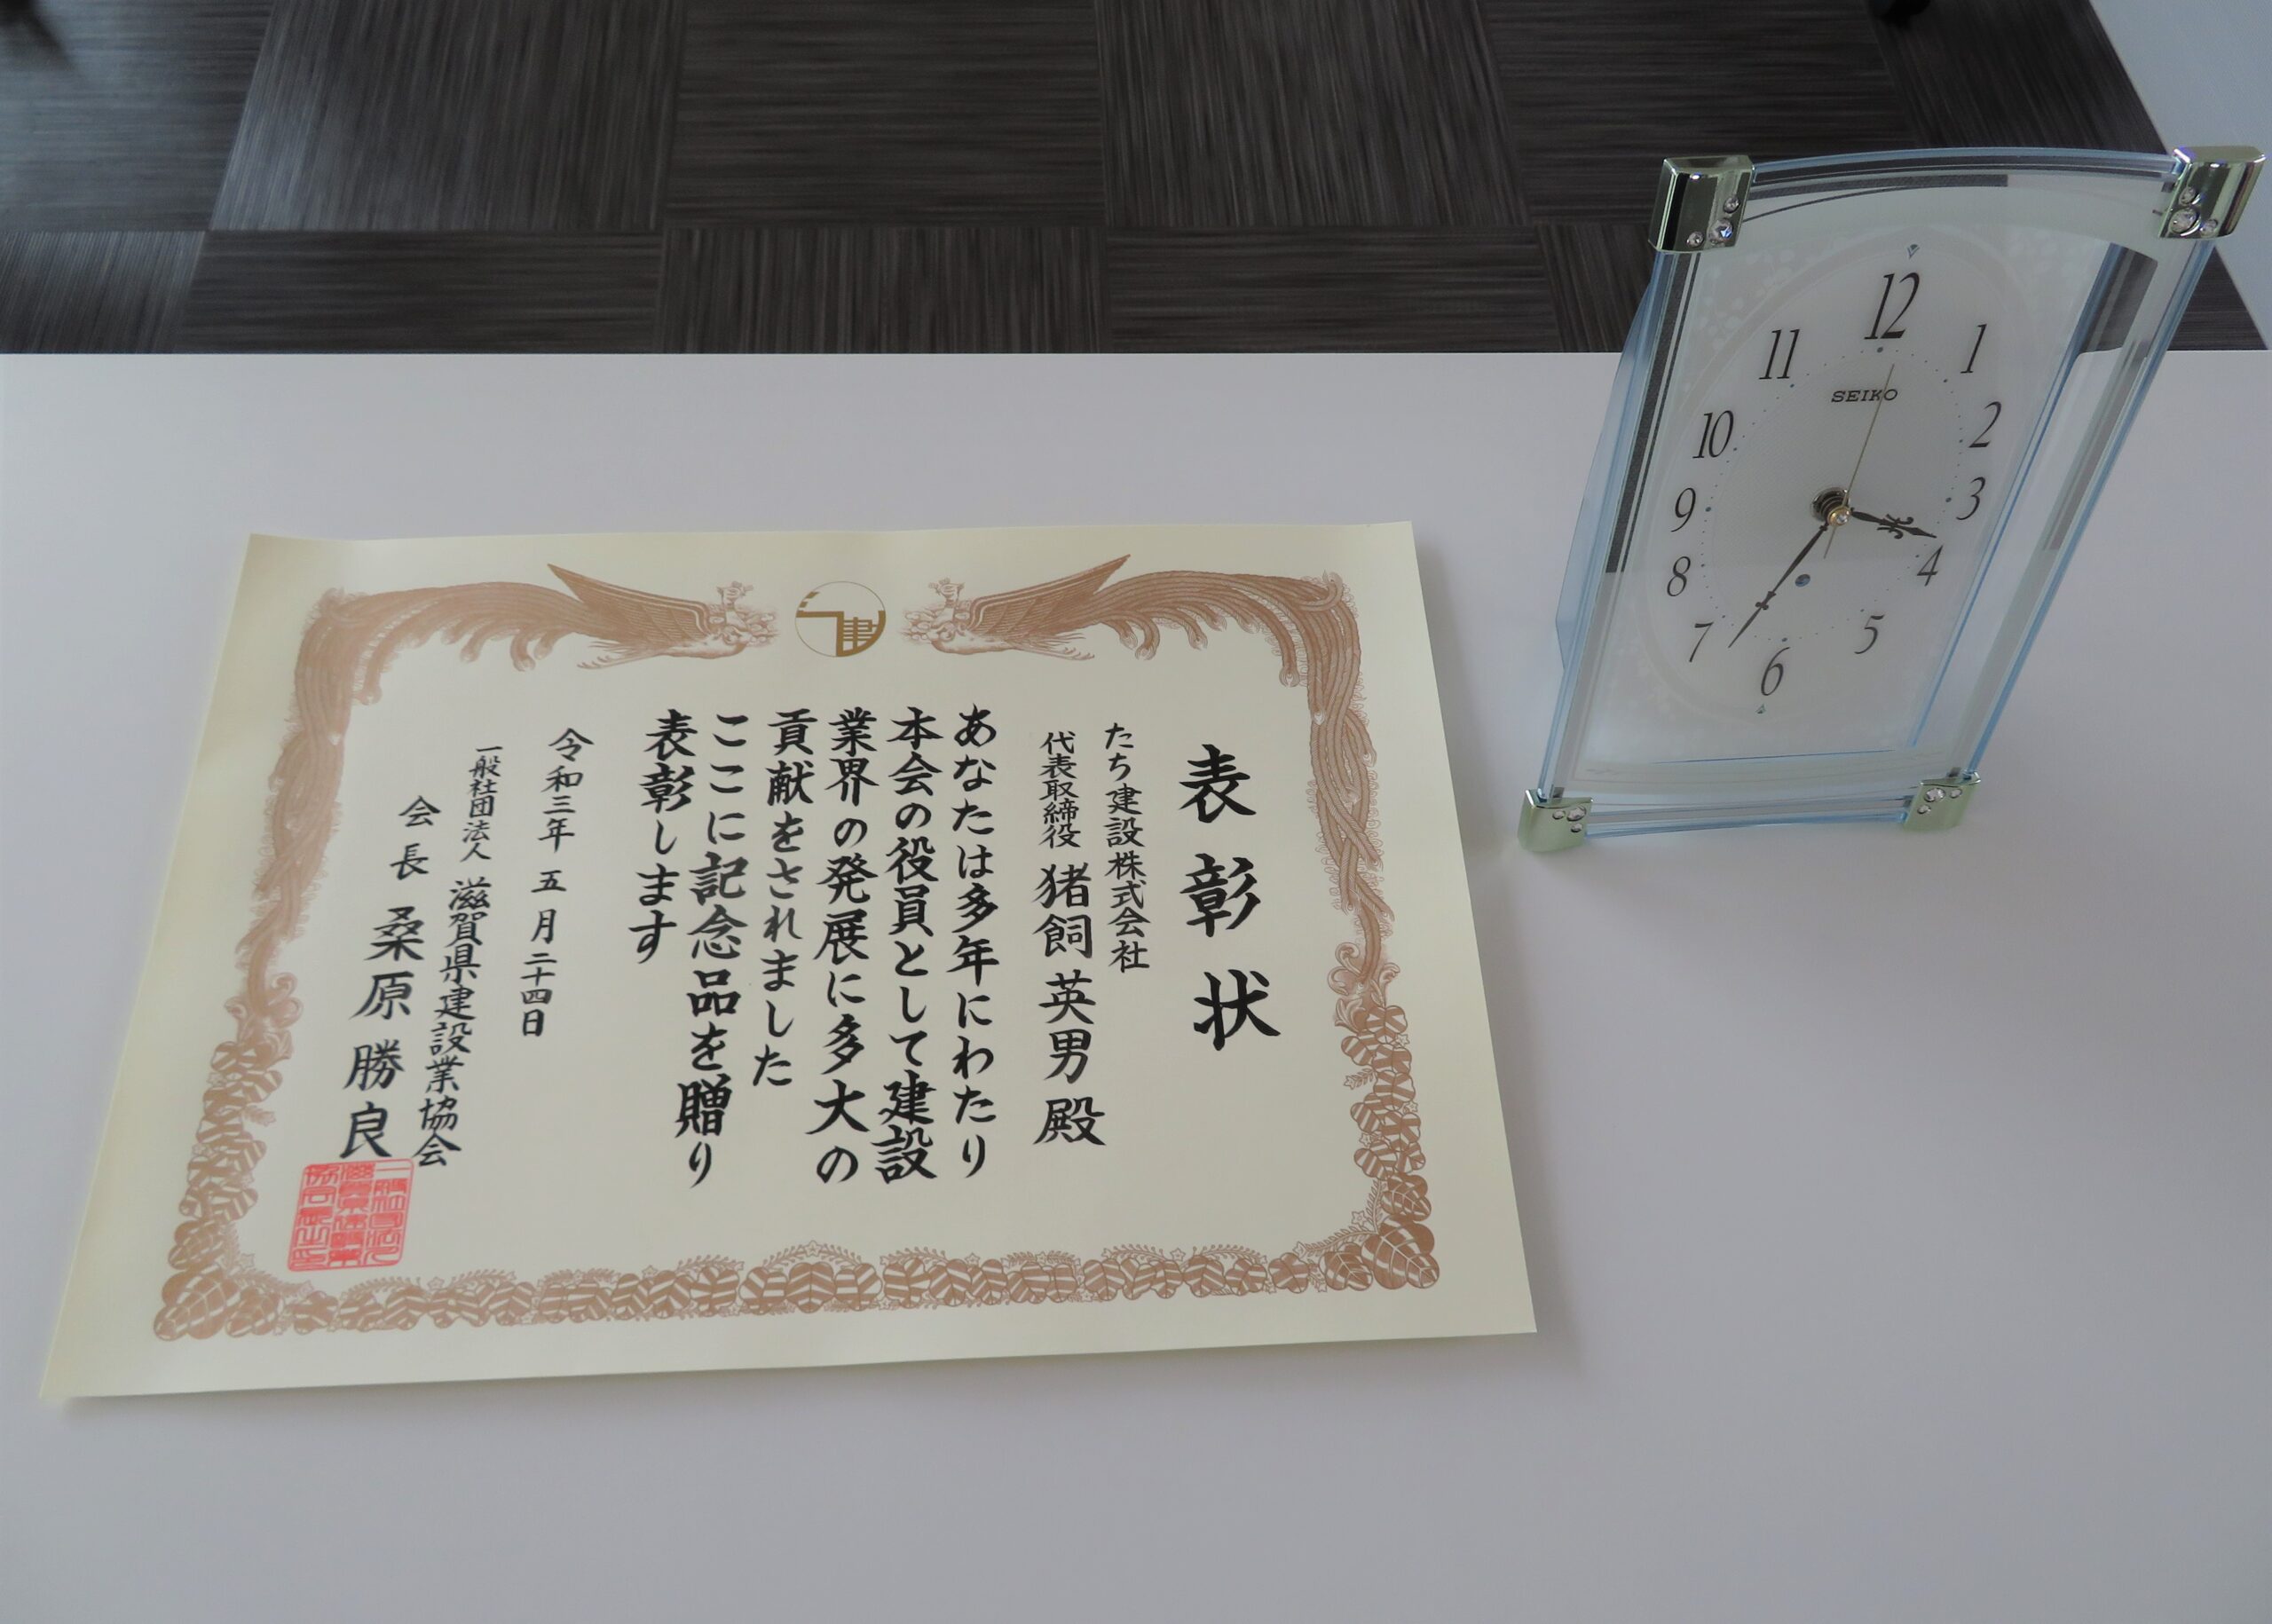 表彰状
たち建設株式会社
代表取締役 猪飼英男殿
あなたは多年にわたり
本会の役員として建設
業界の発展に多大の
貢献をされました
ここに記念品を贈り
表彰します
令和三年五月二十四日
一般社団法人 滋賀県建設業協会
会長 桑原勝良
建
SEIKO
12
1
2
3
4
5
6
7
8
9
10
11